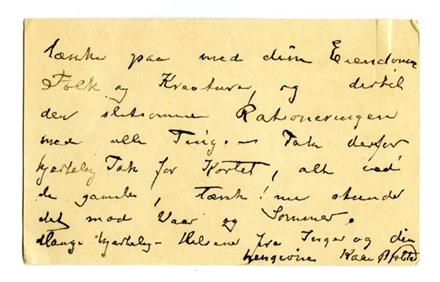 tænke paa med dine Eiendomme
Folk og Kreature, og dertil
den slitsomme Rationeringen
med alle Ting. – Tak derfor
hjertelig Tak for Kortet, alt ved
de gamle, tænk! nu stunder
det mod Vaar og Sommer.
Mange hjertelig– Hilsener fra Inger og din
hengivne Kaare